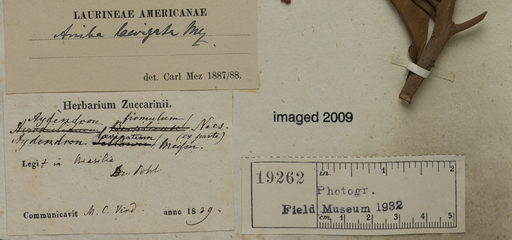 LAURINEAE AMERICANAE
Aniba laevigata Mez
det. Carl Mez 1887/88.
Herbarium Zuccarinii.
Aydendron firmulum Nees.
Aydendron laevigatum (ex parte) Meisn.
Legit in Brasilia
Dr. Pohl
Communicavit M. C. Vind. anno 1839.
imaged 2009
19262
in. 1 2
Photogr.
Field Museum 1932
cm. 1 2 3 4 5